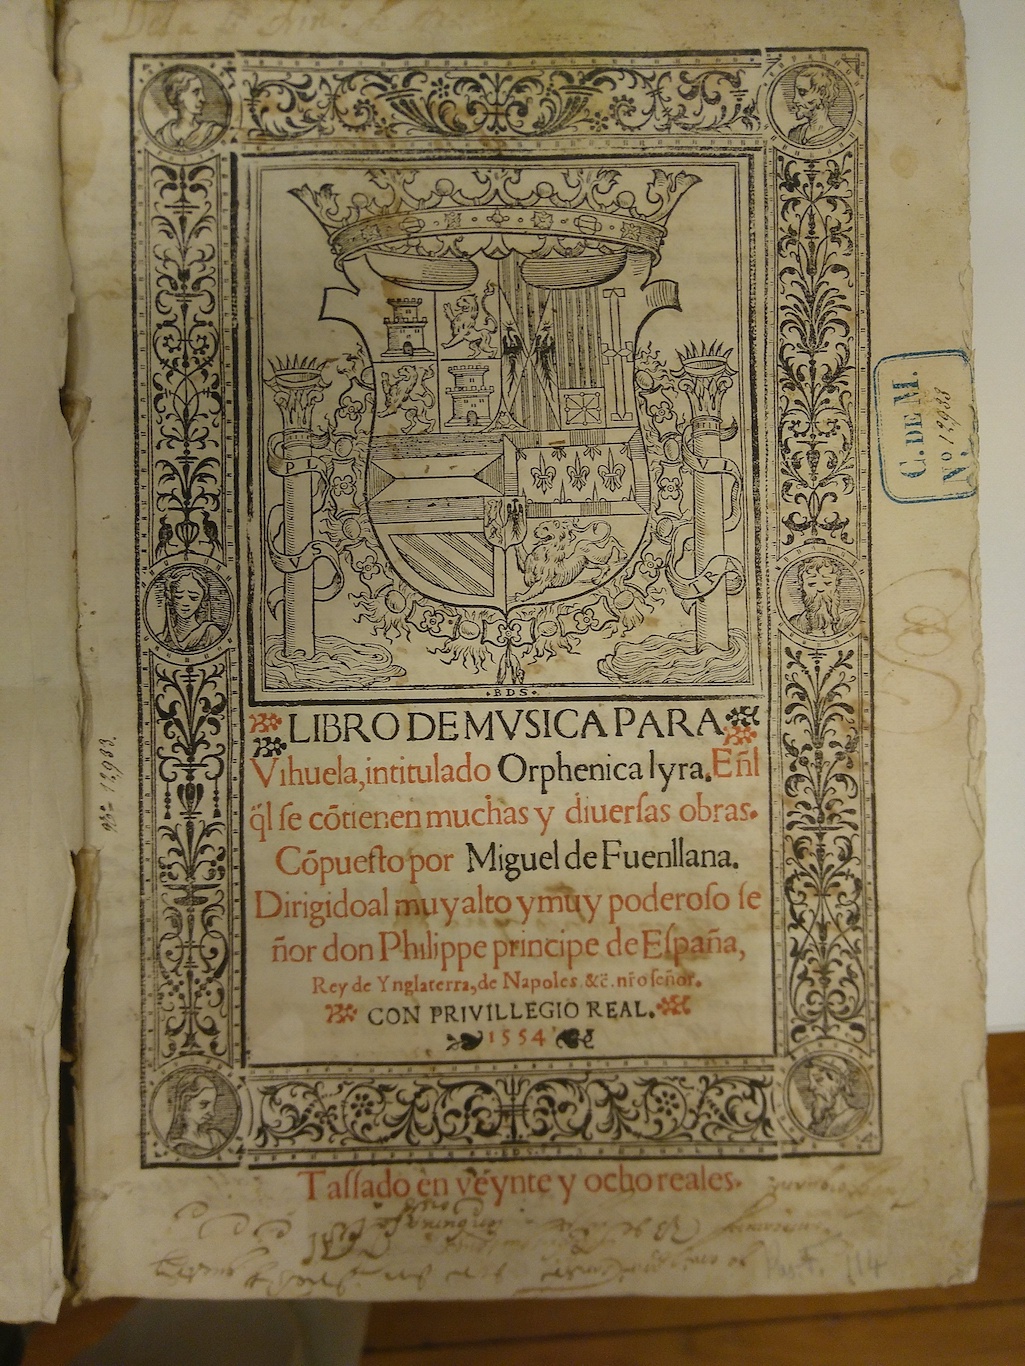 Dela
PL
VS
VL
TR
·BDS·
LIBRO DE MVSICA PARA
Vihuela, intitulado Orphenica lyra. Eñl
q̃l se cōtienen muchas y diuersas obras.
Cōpuesto por Miguel de Fuenllana.
Dirigido al muy alto y muy poderoso se
ñor don Philippe principe de España,
Rey de Ynglaterra, de Napoles &c̃. nr̃o señor.
CON PRIVILLEGIO REAL.
1554
Tassado en veynte y ocho reales.
C. DE M.
Nº. 12,933
12,933.
114